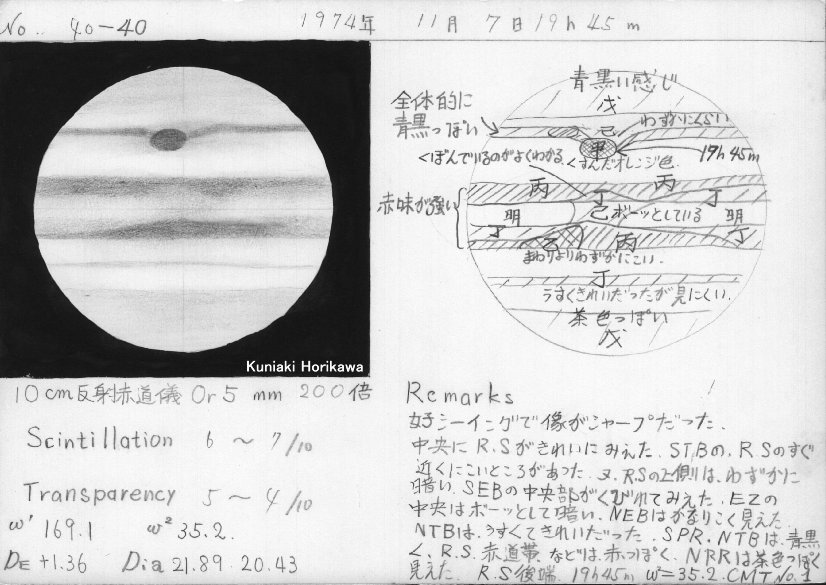 No. 40-40 1974年 11月 7日 19h 45m
青黒い感じ
戊
全体的に
青黒っぽい
己
わずかにくらい
甲
19h 45m
くぼんでいるのがよくわかる。
くすんだオレンジ色。
丙 丙
赤味が強い
丁 丁
明 己 ボーッとしている 明
丁 乙 丙 丁
まわりよりわずかにこい。
丁
うすくきれいだったが見にくい。
茶色っぽい
戊
Kuniaki Horikawa
10cm反射赤道儀 Or5mm 200倍
Scintillation 6〜7/10
Transparency 5〜4/10
ω¹ 169.1 ω² 35.2.
DE +1.36 Dia 21.89 20.43
Remarks
好シーイングで像がシャープだった。
中央にR.Sがきれいにみえた。STBの、R.Sのすぐ
近くにこいところがあった。又、R.Sの上側は、わずかに
暗い。SEBの中央部がくびれてみえた。EZの
中央はボーッとして暗い。NEBはかなりこく見えた。
NTBは、うすくてきれいだった。SPR、NTBは、青黒
く、R.S.赤道帯、などは、赤っぽく、NRRは茶色っぽく
見えた。R.S後端、19h45m ω²=35.2. CMT No.1